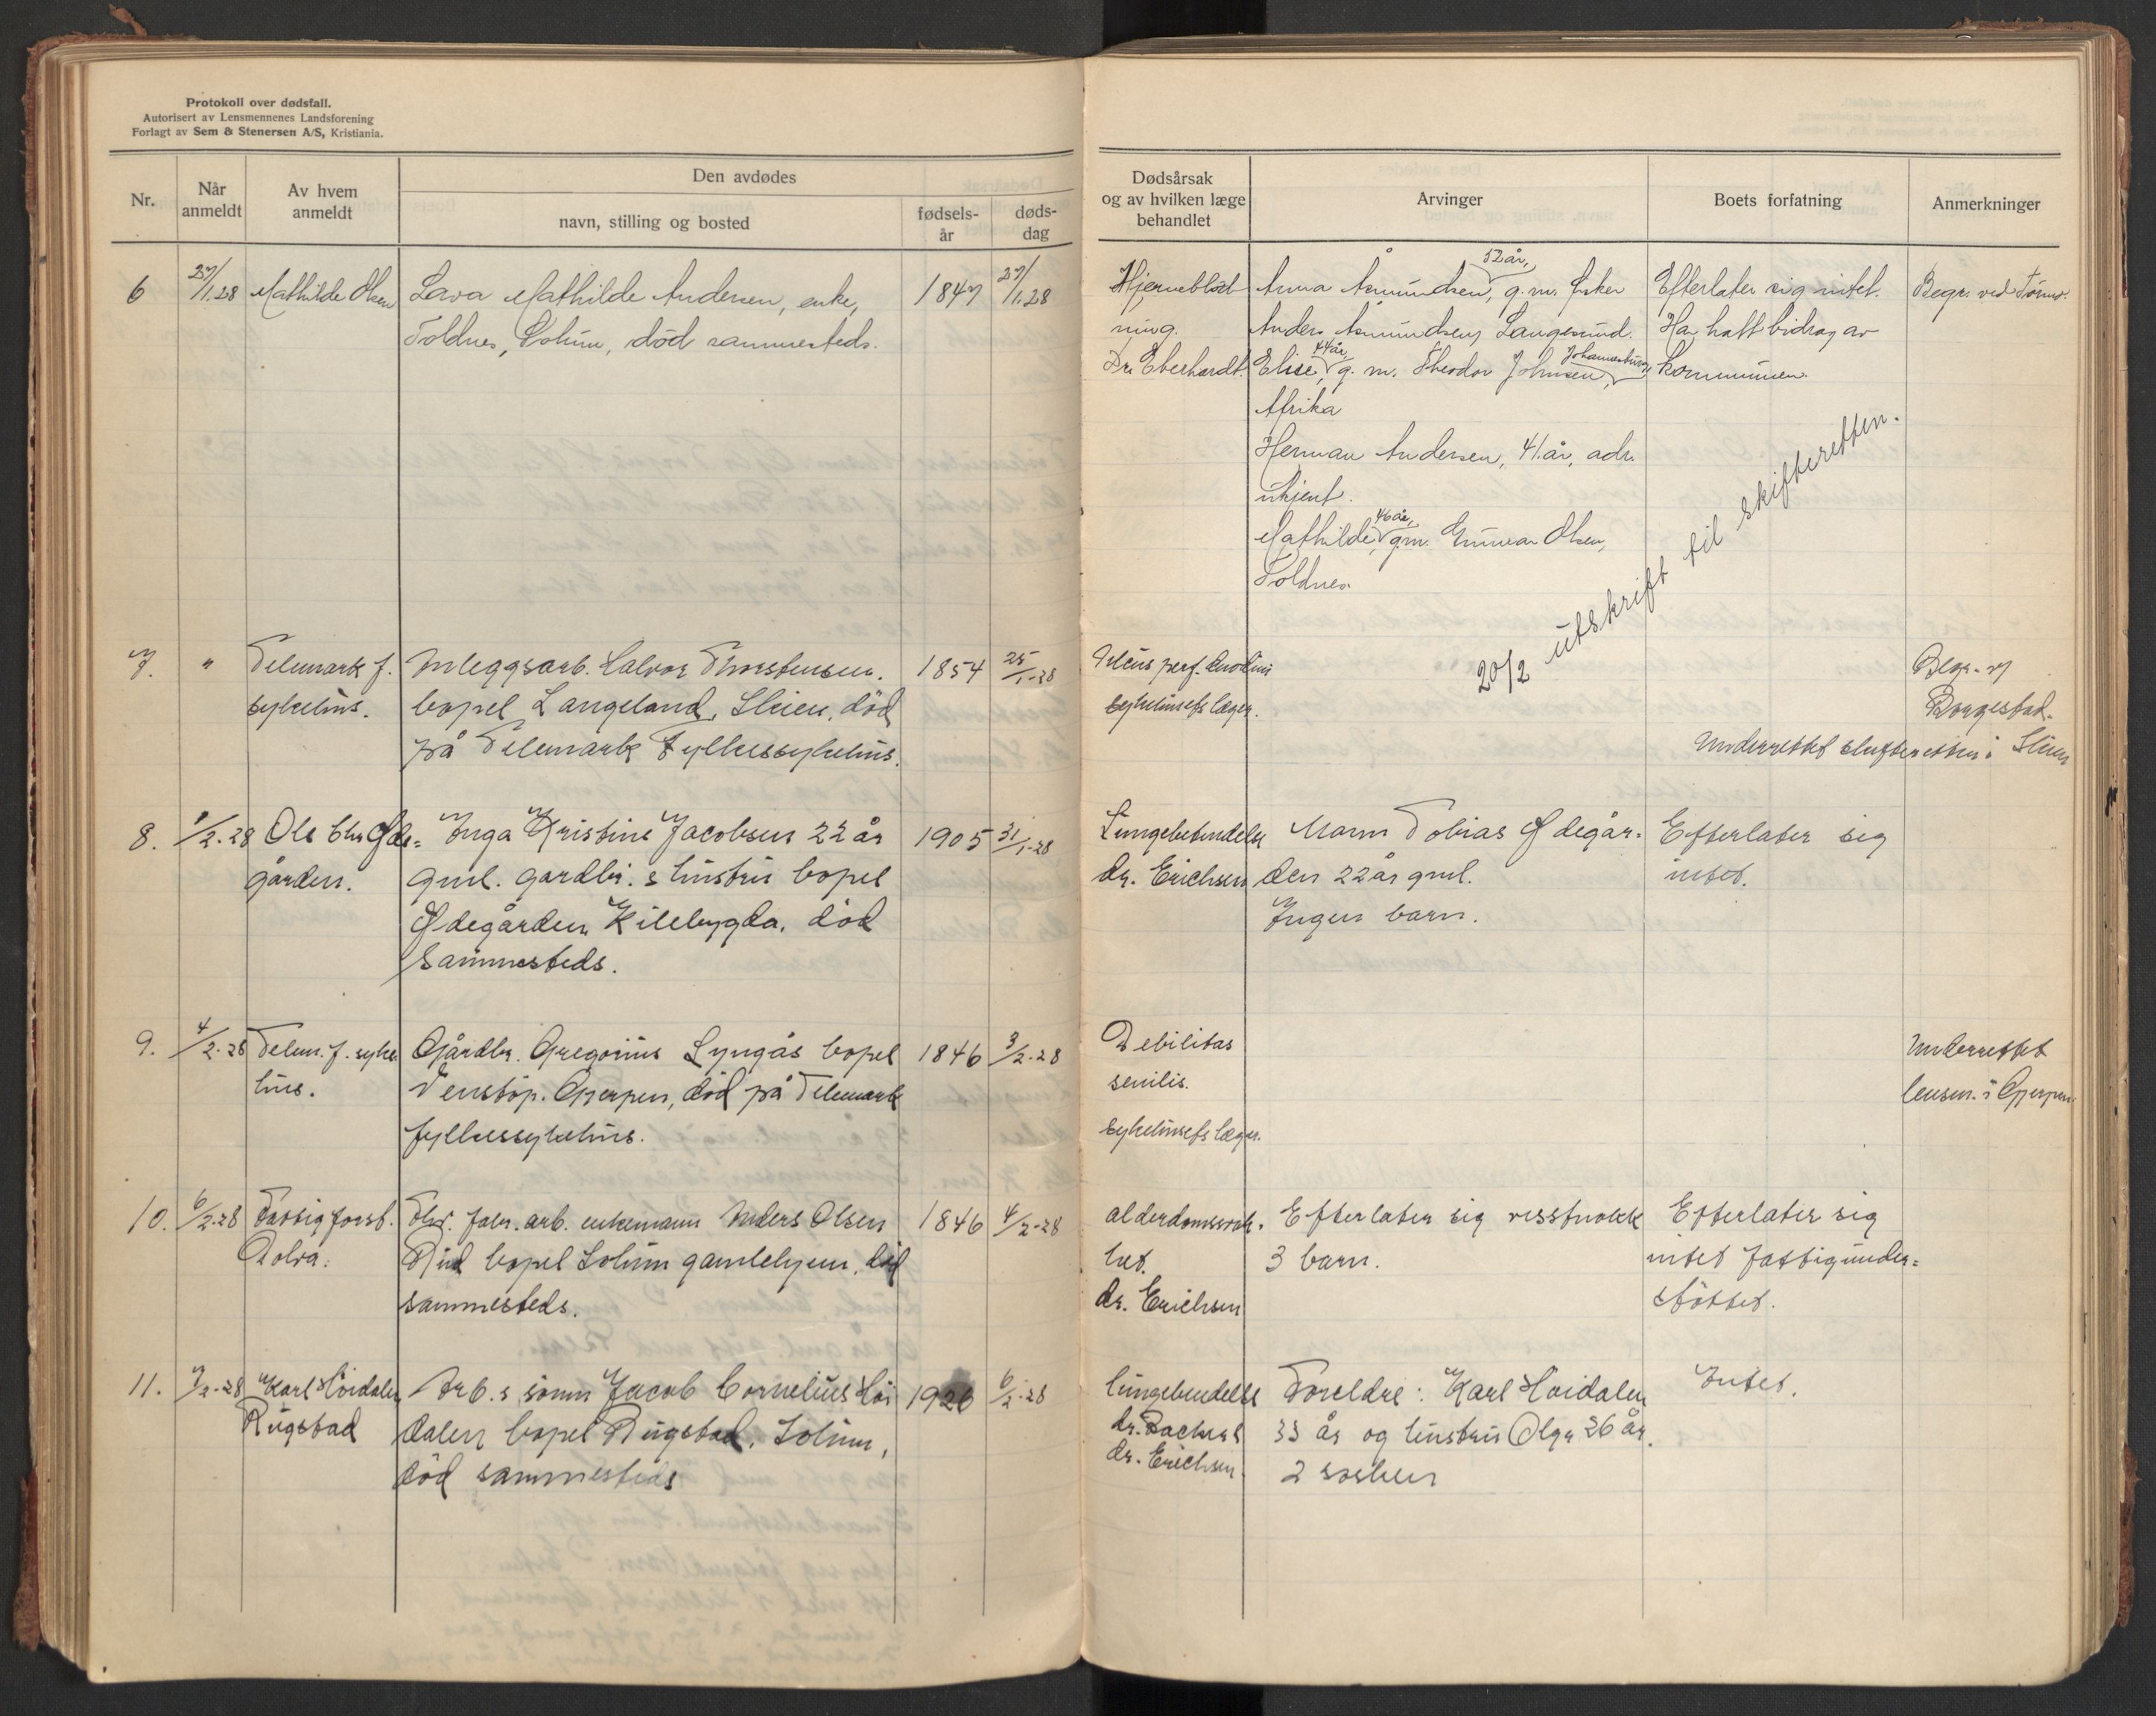 Protokoll over dødsfall.
Autorisert av Lensmennenes Landsforening
Forlagt av Sem & Stenersen A/S, Kristiania.
Nr.
Når anmeldt
Av hvem anmeldt
Den avdødes
navn, stilling og bosted
fødsels-år
døds-dag
Dødsårsak og av hvilken læge behandlet
Arvinger
Boets forfatning
Anmerkninger
6
27/1.28
Mathilde Olsen
Lava Mathilde Andersen, enke,
Toldnes, Solum, död sammesteds.
1847
27/1.28
Hjerneblød-
ning.
Dr. Eberhardt.
Anna Åmundsen, 52 år, g.m. fisker
Anders Åmundsen, Langesund.
Elise, 44 år, g. m. Theodor Johnsen, Johannesburg,
Afrika
Herman Andersen, 41. år, adr.
ukjent.
Mathilde, 46 år, g.m. Gunnar Olsen,
Toldnes.
Efterlater sig intet.
Har hatt bidrag av
kommunen.
Begr. ved
20/2 utskrift til skifteretten.
7.
"
Telemark f.
sykehus.
Anleggsarb. Halvor Thorstensen.
bopel Langeland, Skien, död
på Telemark Fylkessykehus.
1854
25/1-28
Ulcus perf.
sykehusets læger.
Begr. v
Borgestad.
Underrettet skifteretten i Skien
8.
1/2-28
Ole Chr Øde=
gården.
Inga Kristine Jacobsen 22 år
gml. gardbr. s hustru bopel
Ødegården Kilebygda. död
sammesteds.
1905
31/1-28
Lungebetendelse
dr. Erichsen
Mann Tobias Ødegår-
den 22 år gml.
Ingen barn.
Efterlater sig
intet.
9.
4/2-28
Telem. f. syke
hus.
Gårdbr. Gregorius Lyngås bopel
Venstöp. Gjerpen, död på Telemark
fylkessykehus.
1846
3/2-28
Debilitas
senilis.
sykehusets læger.
Underrettet
lensm. i Gjerpen.
10.
6/2-28
Fattigforst.
Aolva.
Fhv. fabr. arb. enkemann Anders Olsen
Rud bopel Solum gamlehjem. död
sammesteds.
1846
4/2-28
alderdomssvak-
het.
dr. Erichsen
Efterlater sig visstnokk
3 barn.
Efterlater sig
intet fattigunder=
støttet.
11.
7/2-28
Karl Höidalen
Rugstad
Arb. s sönn Jacob Cornelius Höi
dalen bopel Rugstad, Solum,
död sammesteds
1926
6/2-28
lungebendelse
dr. Backer
dr. Erichsen.
Foreldre: Karl Höidalen
33 år og hustru Olga 26 år.
2 søsken
Intet.